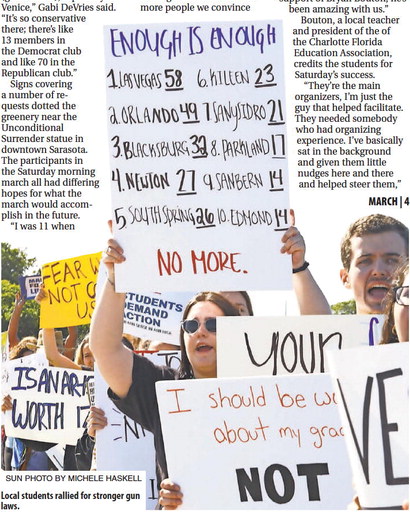 Venice," Gabi DeVries said.
"It's so conservative
there; there's like
13 members in
the Democrat club
and like 70 in the
Republican club."
Signs covering
a number of re-
quests dotted the
greenery near the
Unconditional
Surrender statue in
downtown Sarasota.
The participants in
the Saturday morning
march all had differing
hopes for what the
march would accom-
plish in the future.
"I was 11 when
more people we convince
been amazing with us."
Bouton, a local teacher
and president of the of
the Charlotte Florida
Education Association,
credits the students for
Saturday's success.
"They're the main
organizers, I'm just the
guy that helped facilitate.
They needed somebody
who had organizing
experience. I've basically
sat in the background
and given them little
nudges here and there
and helped steer them,"
MARCH | 4
ENOUGH IS ENOUGH
1. LAS VEGAS 58 6. KILEEN 23
2. ORLANDO 49 7 SAN YSIDRO 21
3. BLACKSBURG 32 8. PARKLAND 17
4. NEWTON 27 9 SAN BERN 14
5 SOUTH SPRING 26 10. EDMOND 14
NO MORE.
FEAR
NOT
STUDENTS
DEMAND
ACTION
IS AN AR
WORTH
YOUR
I should be
about my
NOT
SUN PHOTO BY MICHELE HASKELL
Local students rallied for stronger gun
laws.